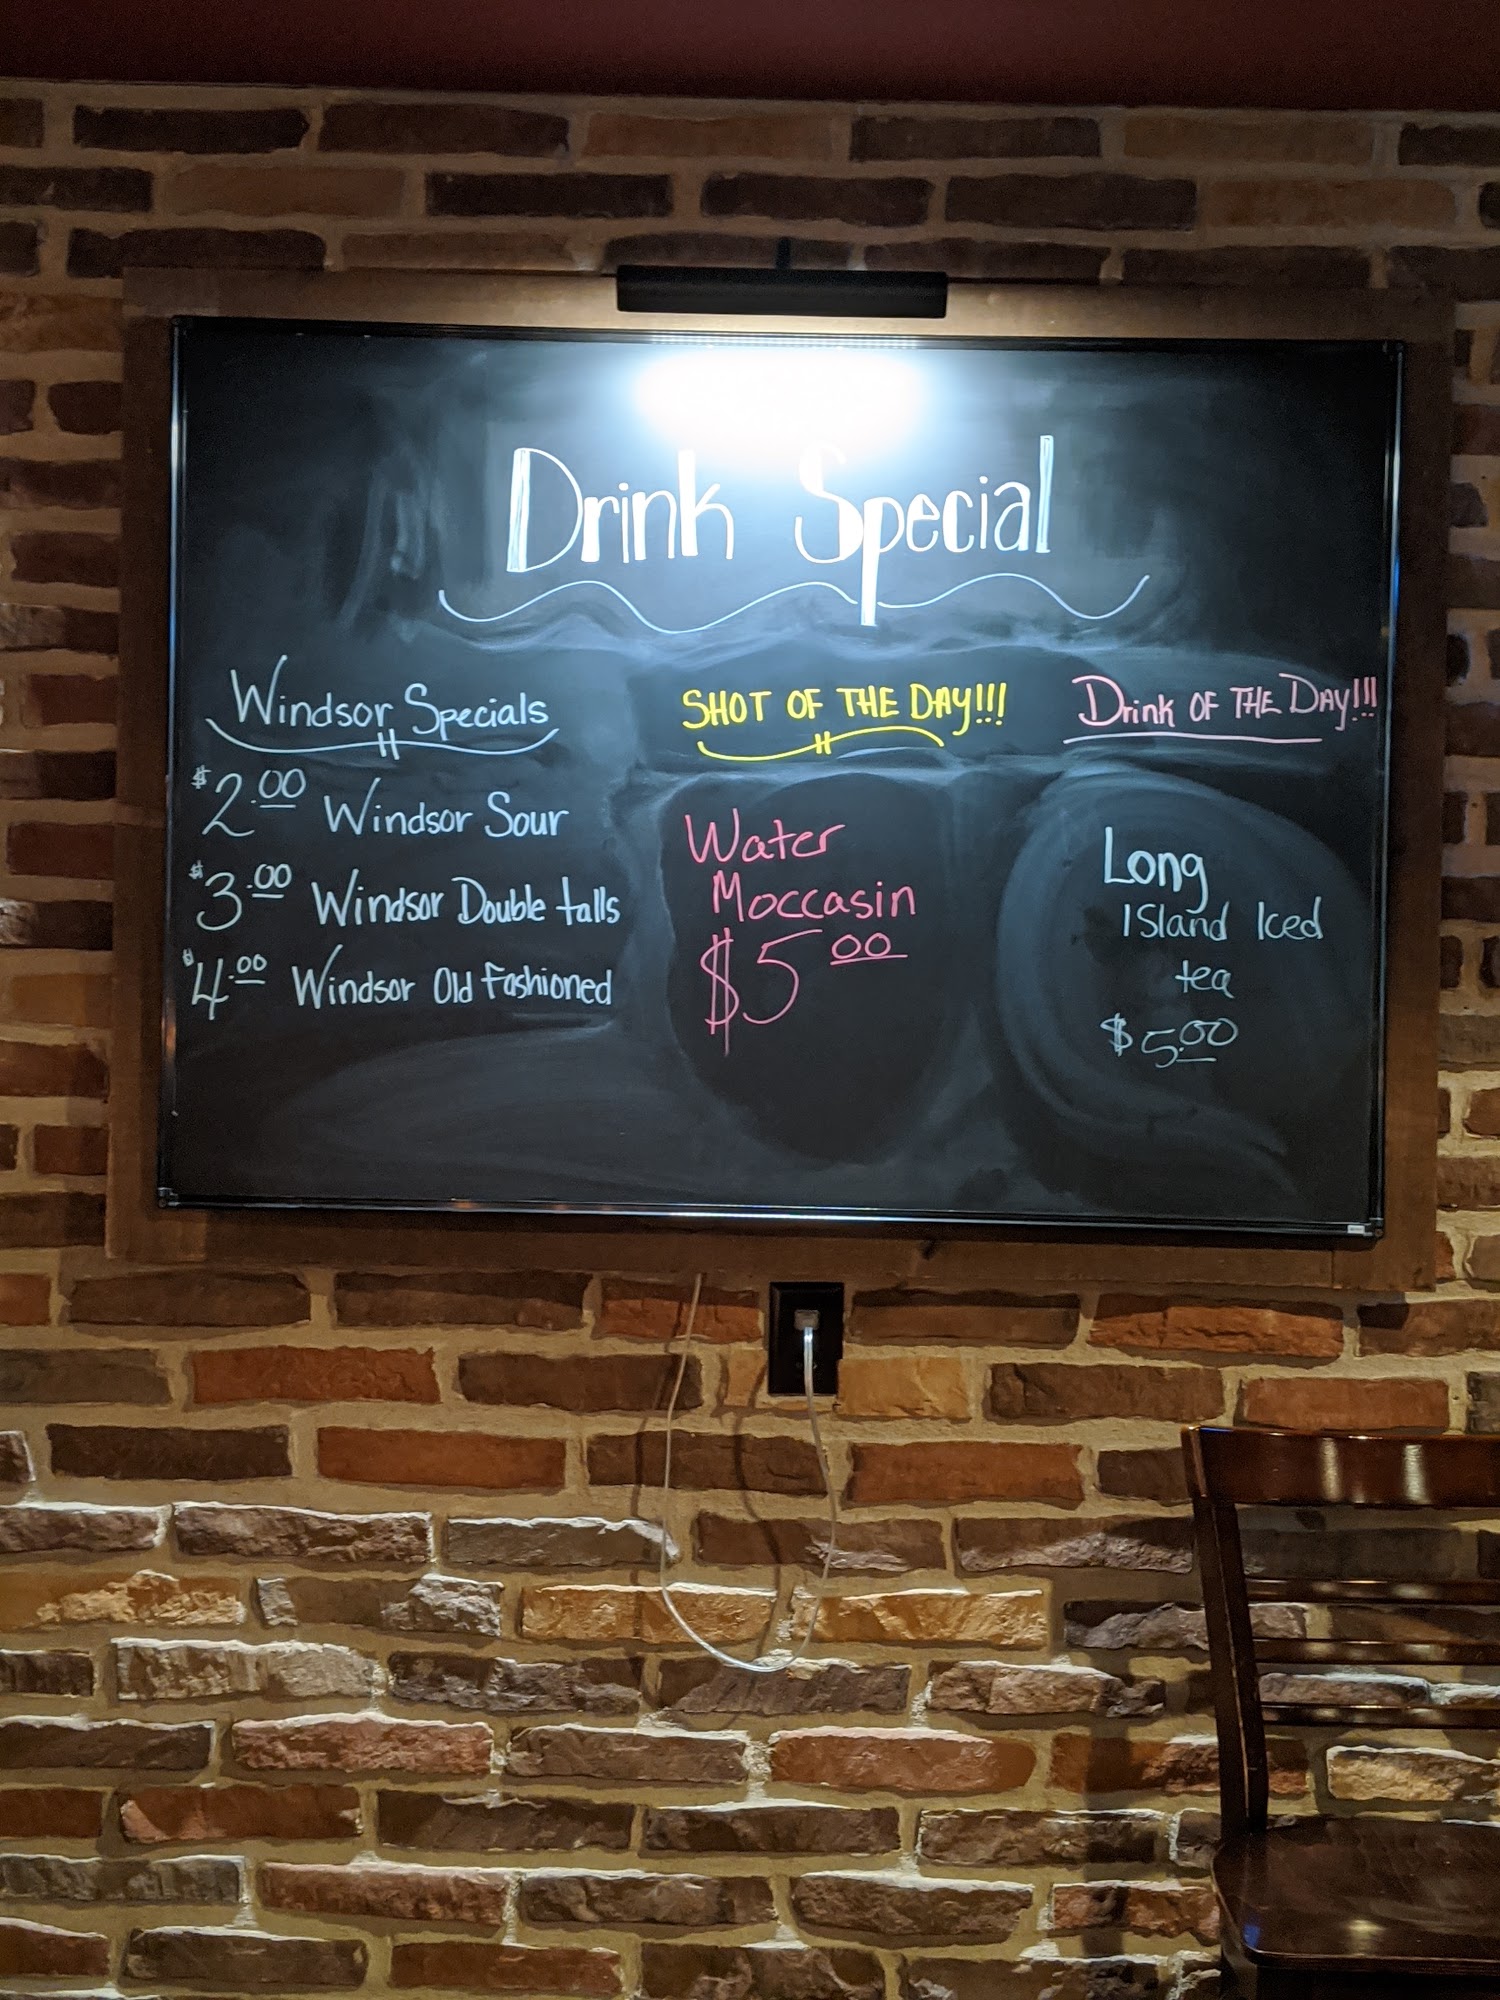 Drink Special
Windsor Specials
$2.00 Windsor Sour
$3.00 Windsor Double talls
$4.00 Windsor Old Fashioned
SHOT OF THE DAY!!!
Water
Moccasin
$5.00
Drink OF THE DAY!!!
Long
Island Iced
tea
$5.00